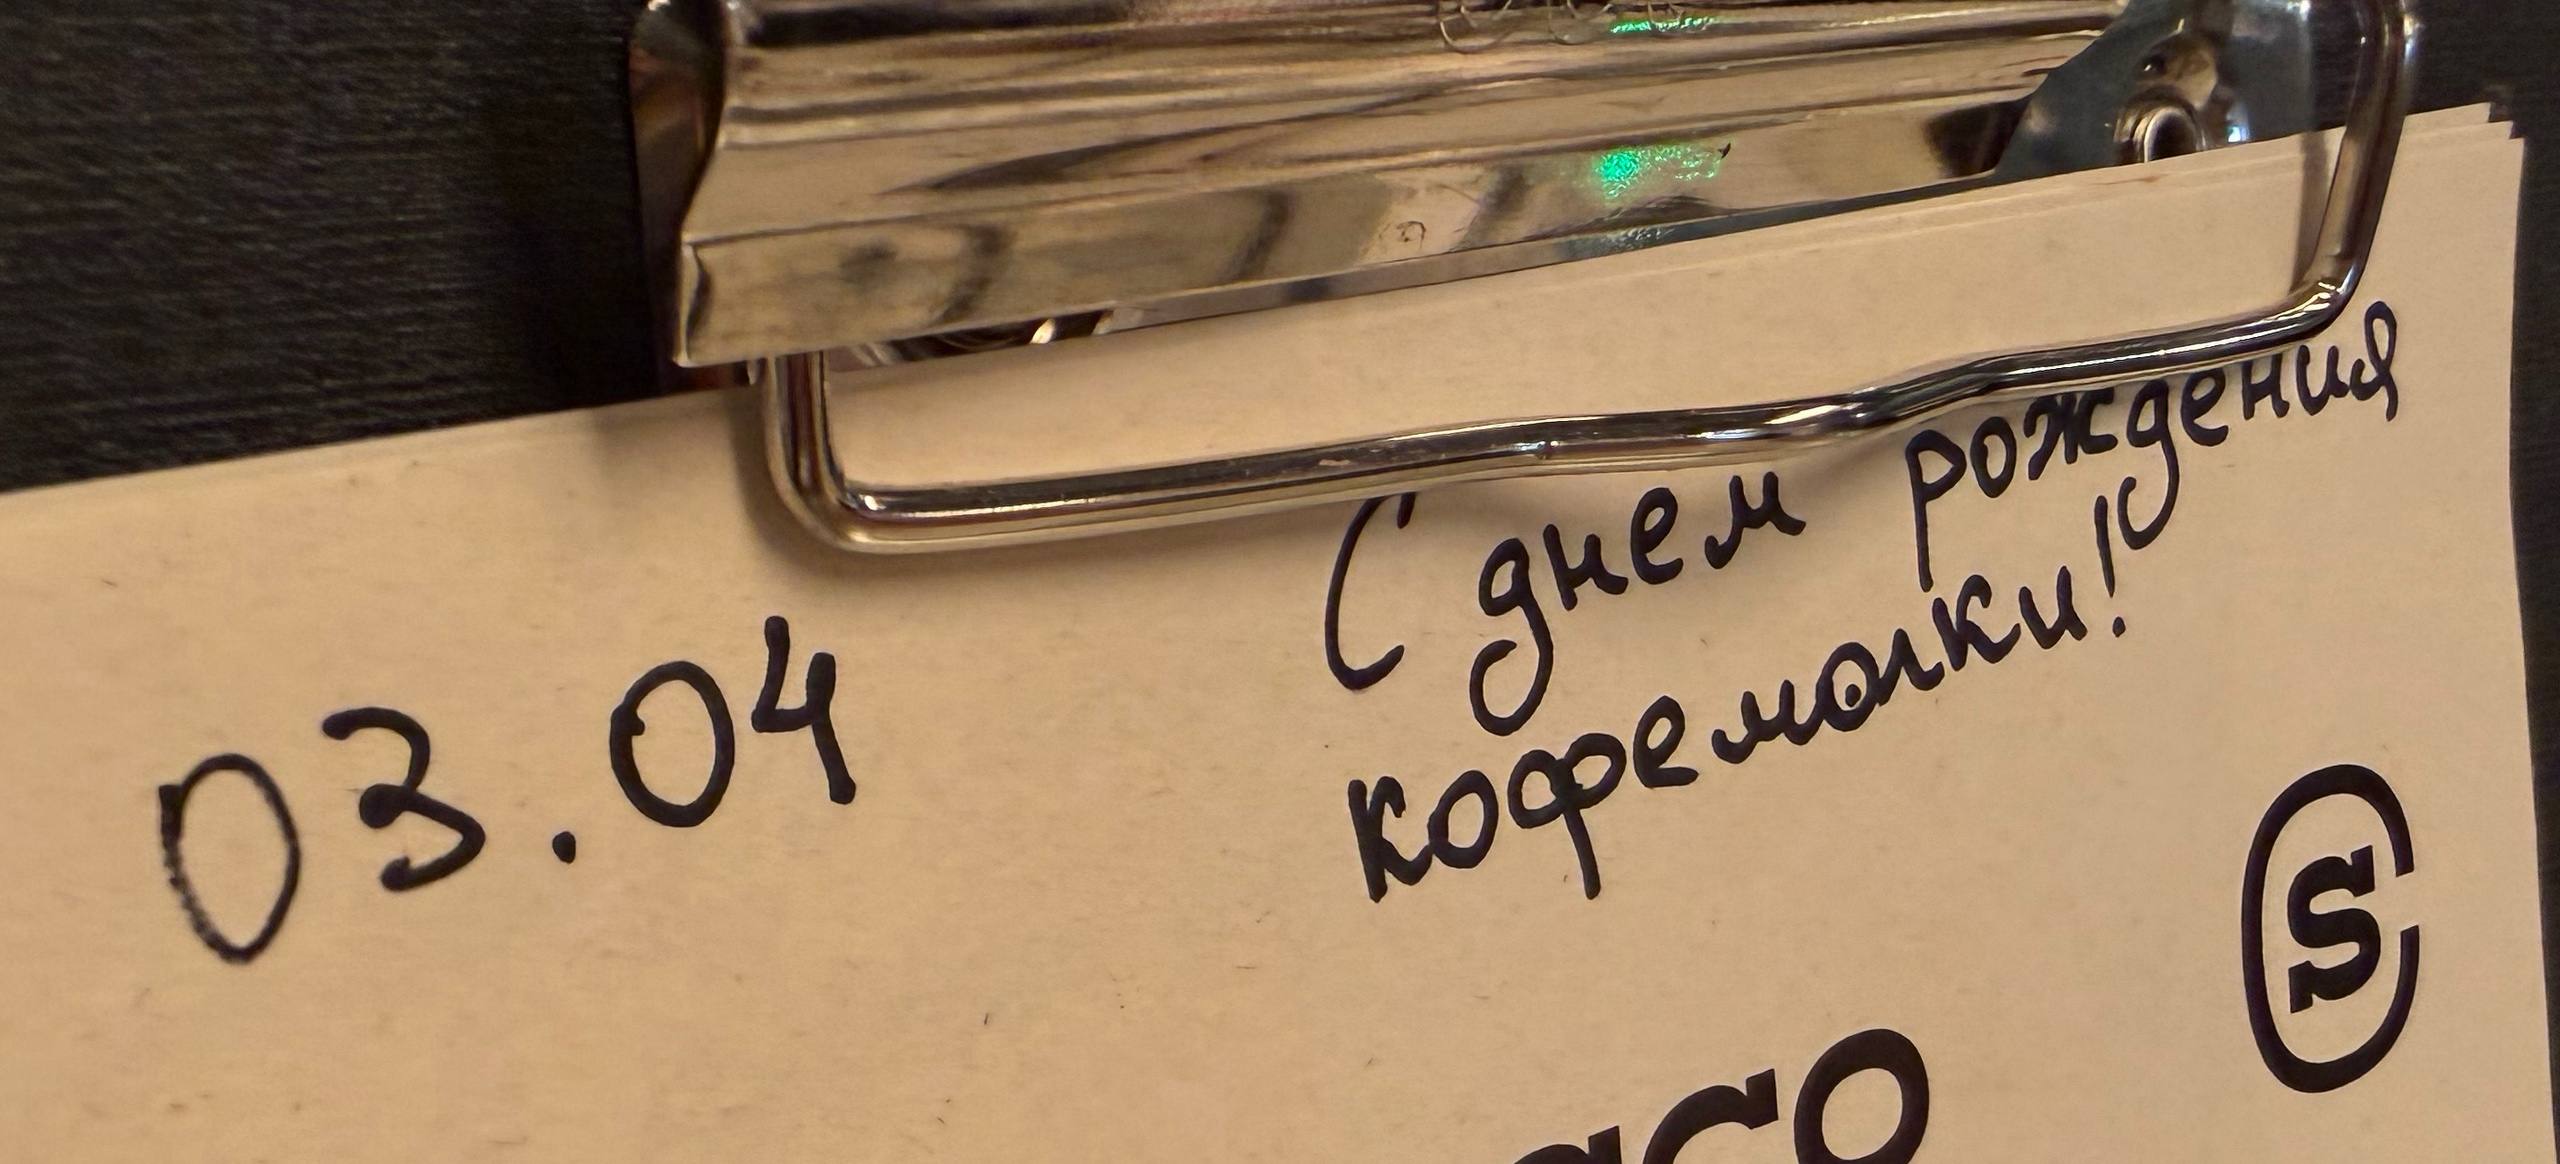 03.04
С днем рождения
кофемолки!
S